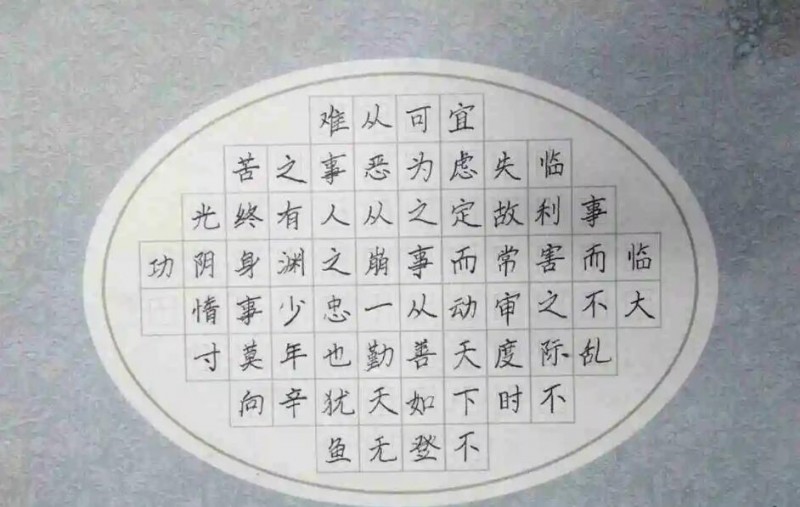 临大
事而不乱
临利害之际不
失故常审度时
宜虑定而动天下不
可为之事从善如登
从恶从崩一勤天无
难事人之忠也犹鱼
之有渊少年辛
苦终身事莫向
光阴惰寸
功